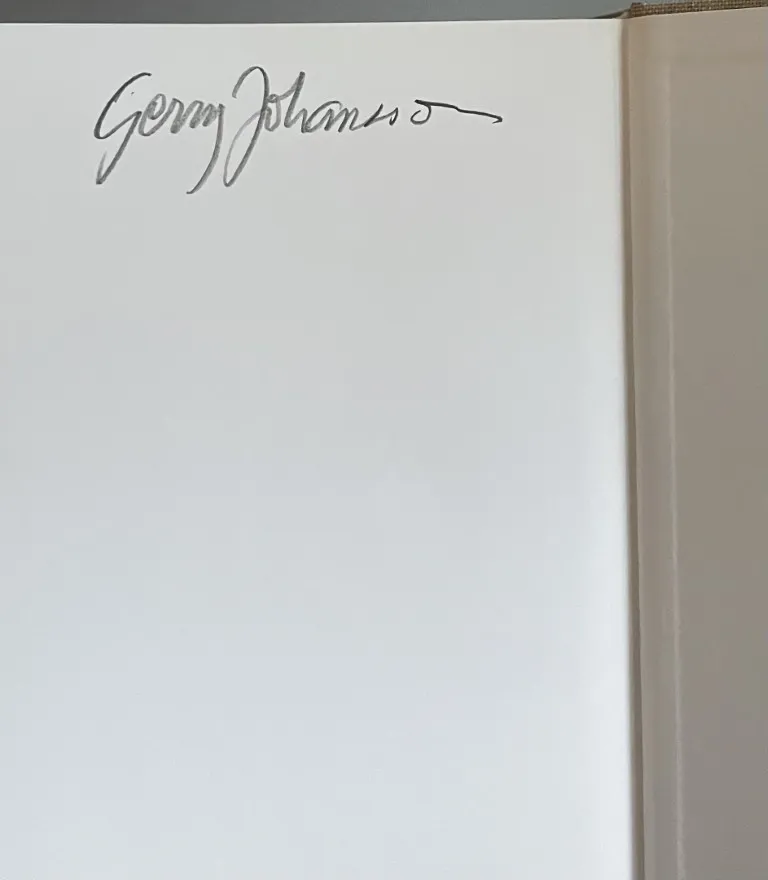 Gerry Johansson